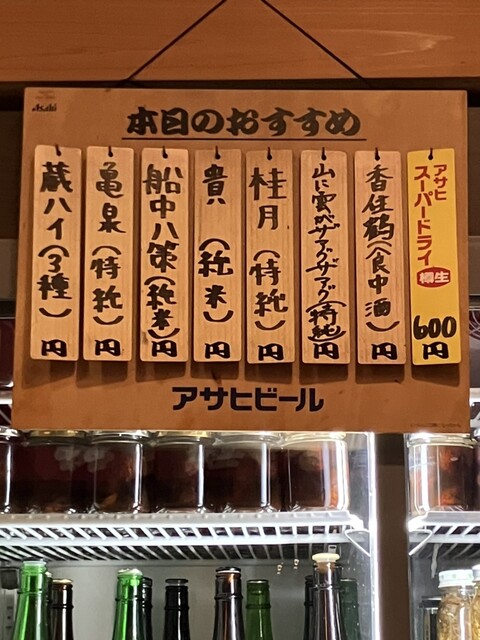 Asahi
本日のおすすめ
アサヒ
スーパードライ
樽生
600
円
香住鶴(食中酒)
円
山に雲がザアックザアック(特純)
円
桂月(特純)
円
貴(純米)
円
船中八策(純米)
円
亀泉(特純)
円
蔵ハイ(3種)
円
アサヒビール